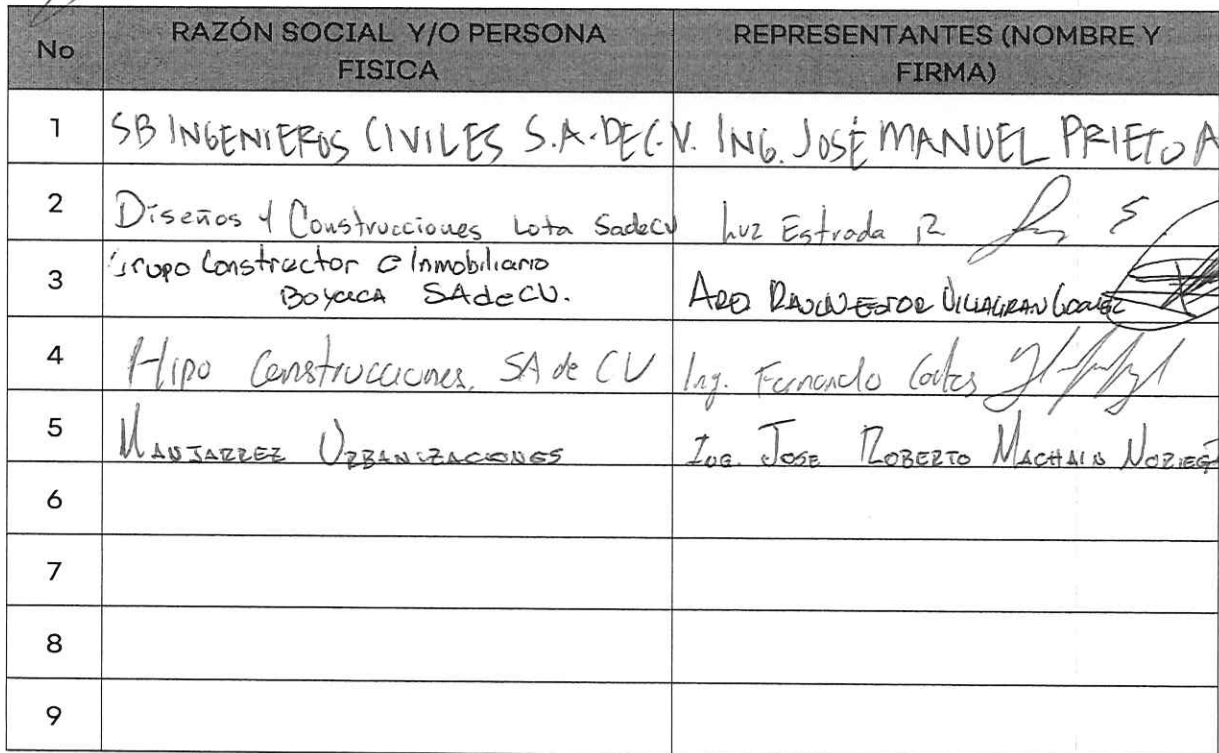 No
RAZÓN SOCIAL Y/O PERSONA
FISICA
REPRESENTANTES (NOMBRE Y
FIRMA)
1
SB INGENIEROS CIVILES S.A. DE C.V.
ING. JOSÉ MANUEL PRIETO A
2
Diseños y Construcciones Lota SadeCV
Luz Estrada R
3
Grupo Constructor e Inmobiliario
Boyaca SAdeCV.
VILLAGRAN
4
Hipo Construcciones, SA de CV
Ing. Fernando
5
MANJARREZ URBANIZACIONES
ING. JOSE ROBERTO MACHAIN NORIEGA
6
7
8
9